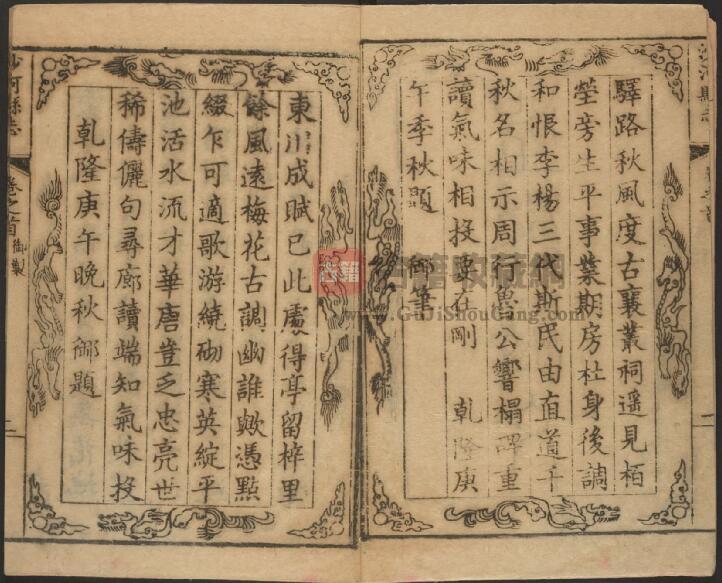 驛路秋風度古襄叢祠遥見栢
塋旁生平事業期房杜身後調
和恨李楊三代斯民由直道千
秋名相示周行魯公響榻碑重
讀氣味相投要在剛 乾隆庚
午季秋題 御筆
東川成賦已此處得亭留梓里
餘風遠梅花古調幽誰歟憑點
綴乍可適歌游繞砌寒英綻平
池活水流才華唐豈乏忠亮世
稀儔儷句尋廊讀端知氣味投
乾隆庚午晚秋御題
沙河縣志
卷之首 御製
二
古籍
古籍收藏網
www.GuJiShouCang.com